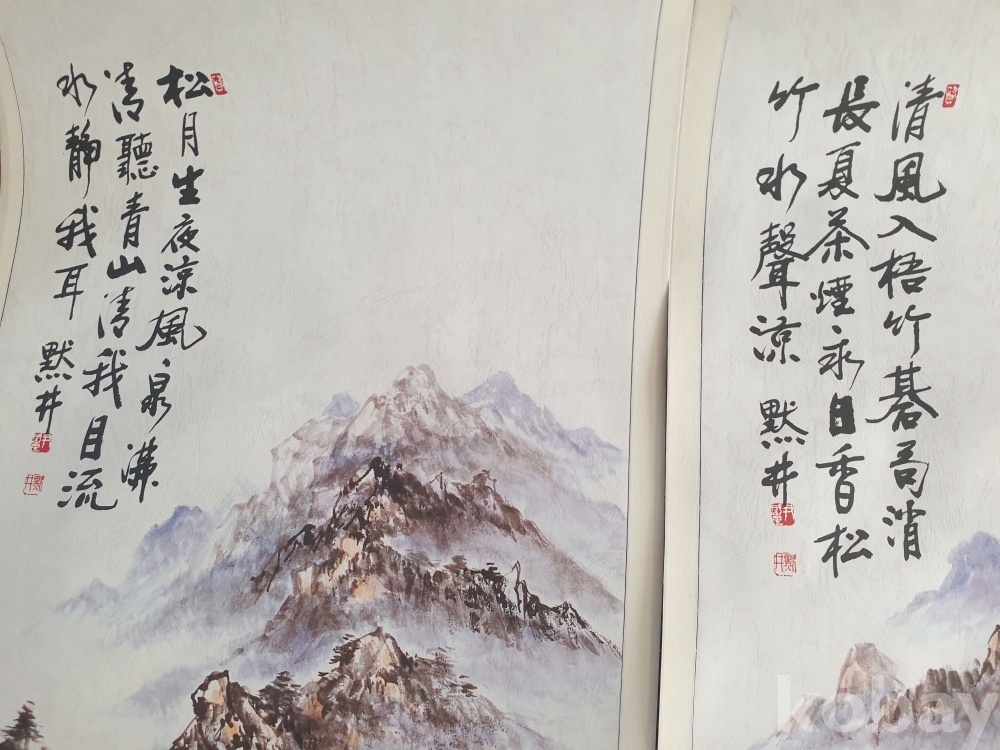 清風入梧竹碁局消
長夏茶煙永日香松
竹水聲涼 默井
松月生夜涼風泉滿
清聽青山清我目流
水靜我耳 默井
kobay